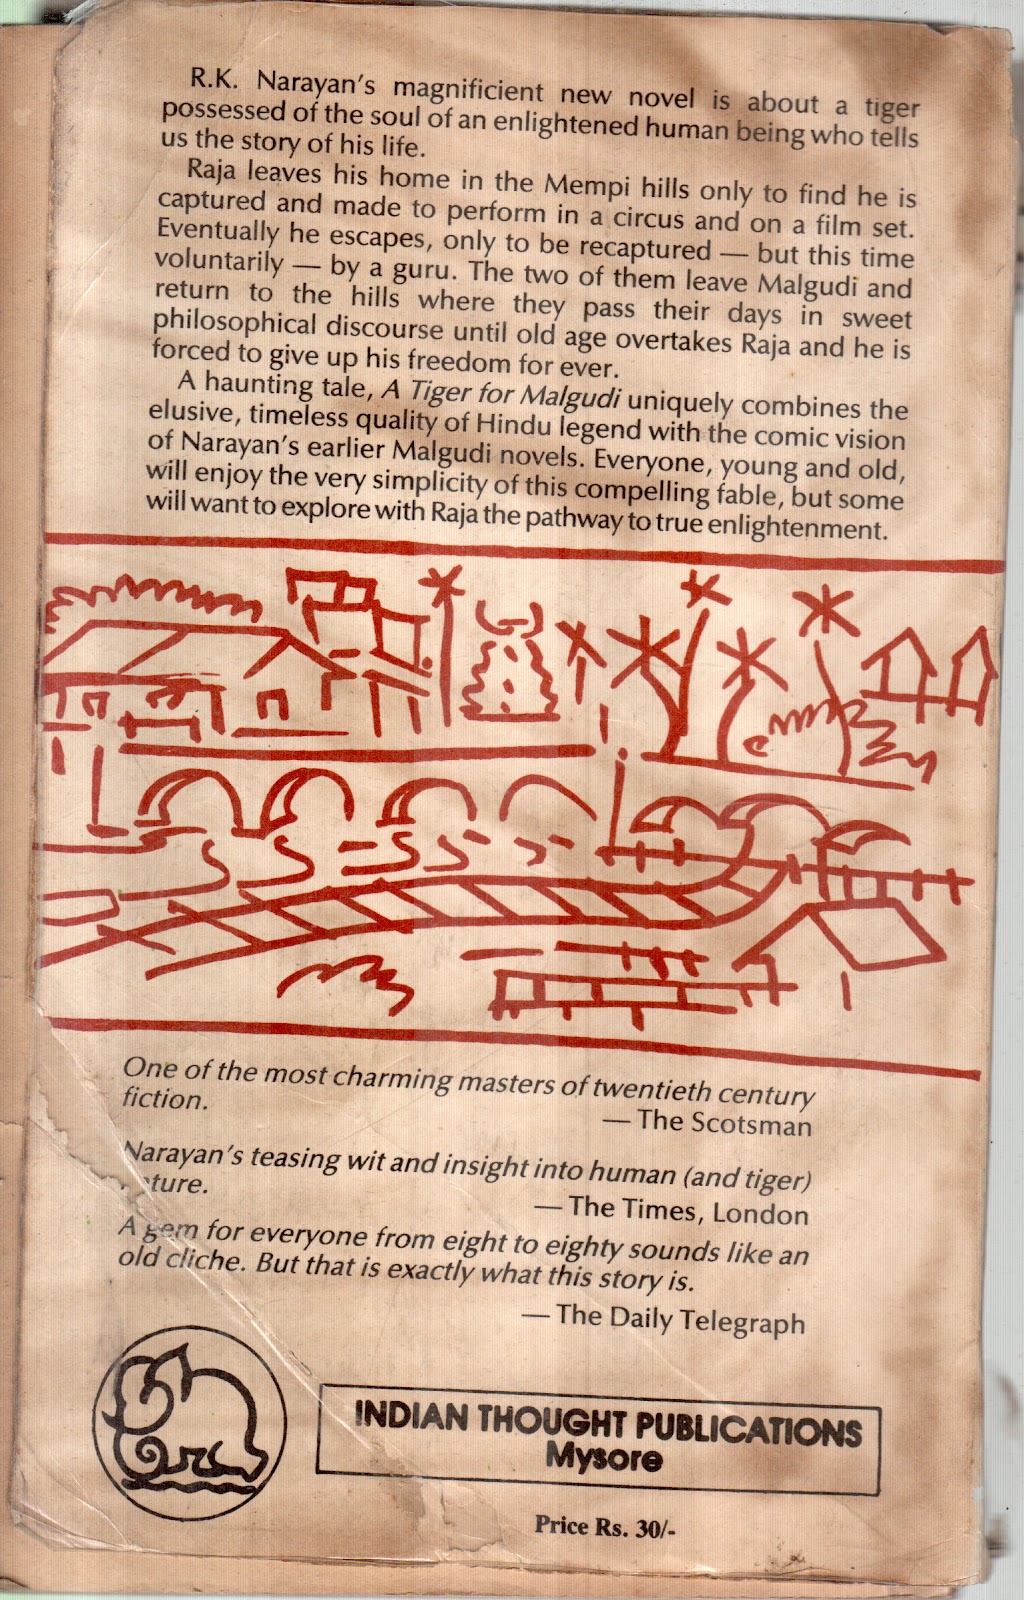 R.K. Narayan's magnificient new novel is about a tiger
possessed of the soul of an enlightened human being who tells
us the story of his life.
Raja leaves his home in the Mempi hills only to find he is
captured and made to perform in a circus and on a film set.
Eventually he escapes, only to be recaptured — but this time
voluntarily — by a guru. The two of them leave Malgudi and
return to the hills where they pass their days in sweet
philosophical discourse until old age overtakes Raja and he is
forced to give up his freedom for ever.
A haunting tale, A Tiger for Malgudi uniquely combines the
elusive, timeless quality of Hindu legend with the comic vision
of Narayan's earlier Malgudi novels. Everyone, young and old,
will enjoy the very simplicity of this compelling fable, but some
will want to explore with Raja the pathway to true enlightenment.
One of the most charming masters of twentieth century
fiction.
— The Scotsman
Narayan's teasing wit and insight into human (and tiger)
ture.
— The Times, London
A gem for everyone from eight to eighty sounds like an
old cliche. But that is exactly what this story is.
— The Daily Telegraph
INDIAN THOUGHT PUBLICATIONS
Mysore
Price Rs. 30/-